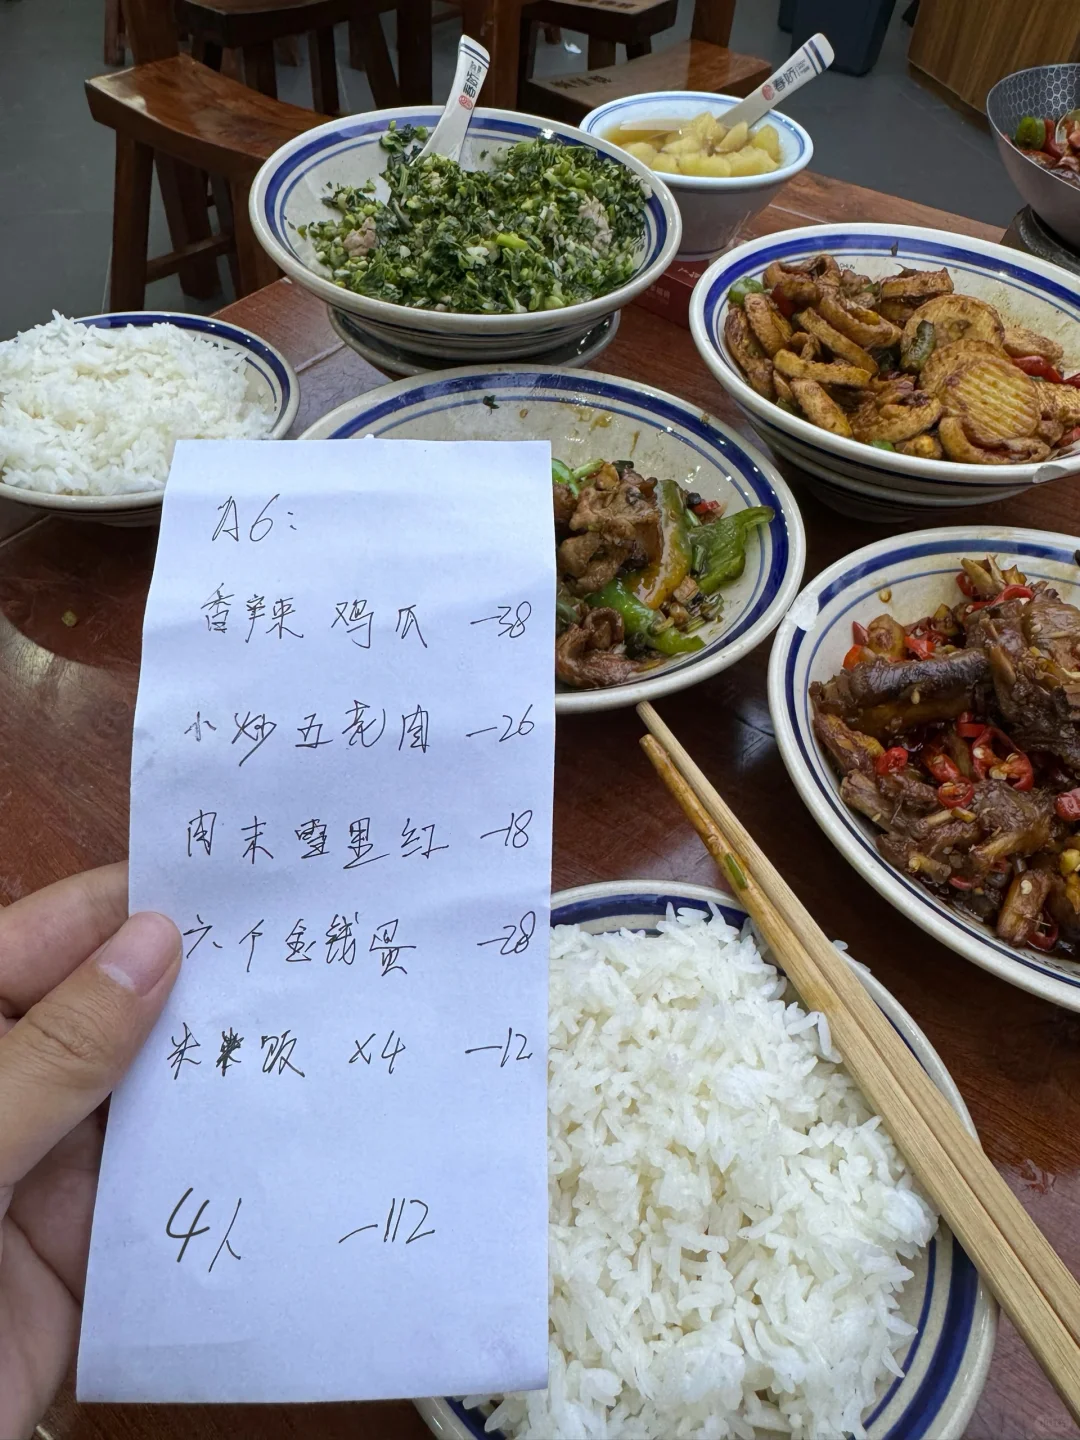 A6:
香辣鸡爪 -38
小炒五花肉 -26
肉末雪里红 -18
六个金钱蛋 -28
米饭 x4 -12
4人 -112